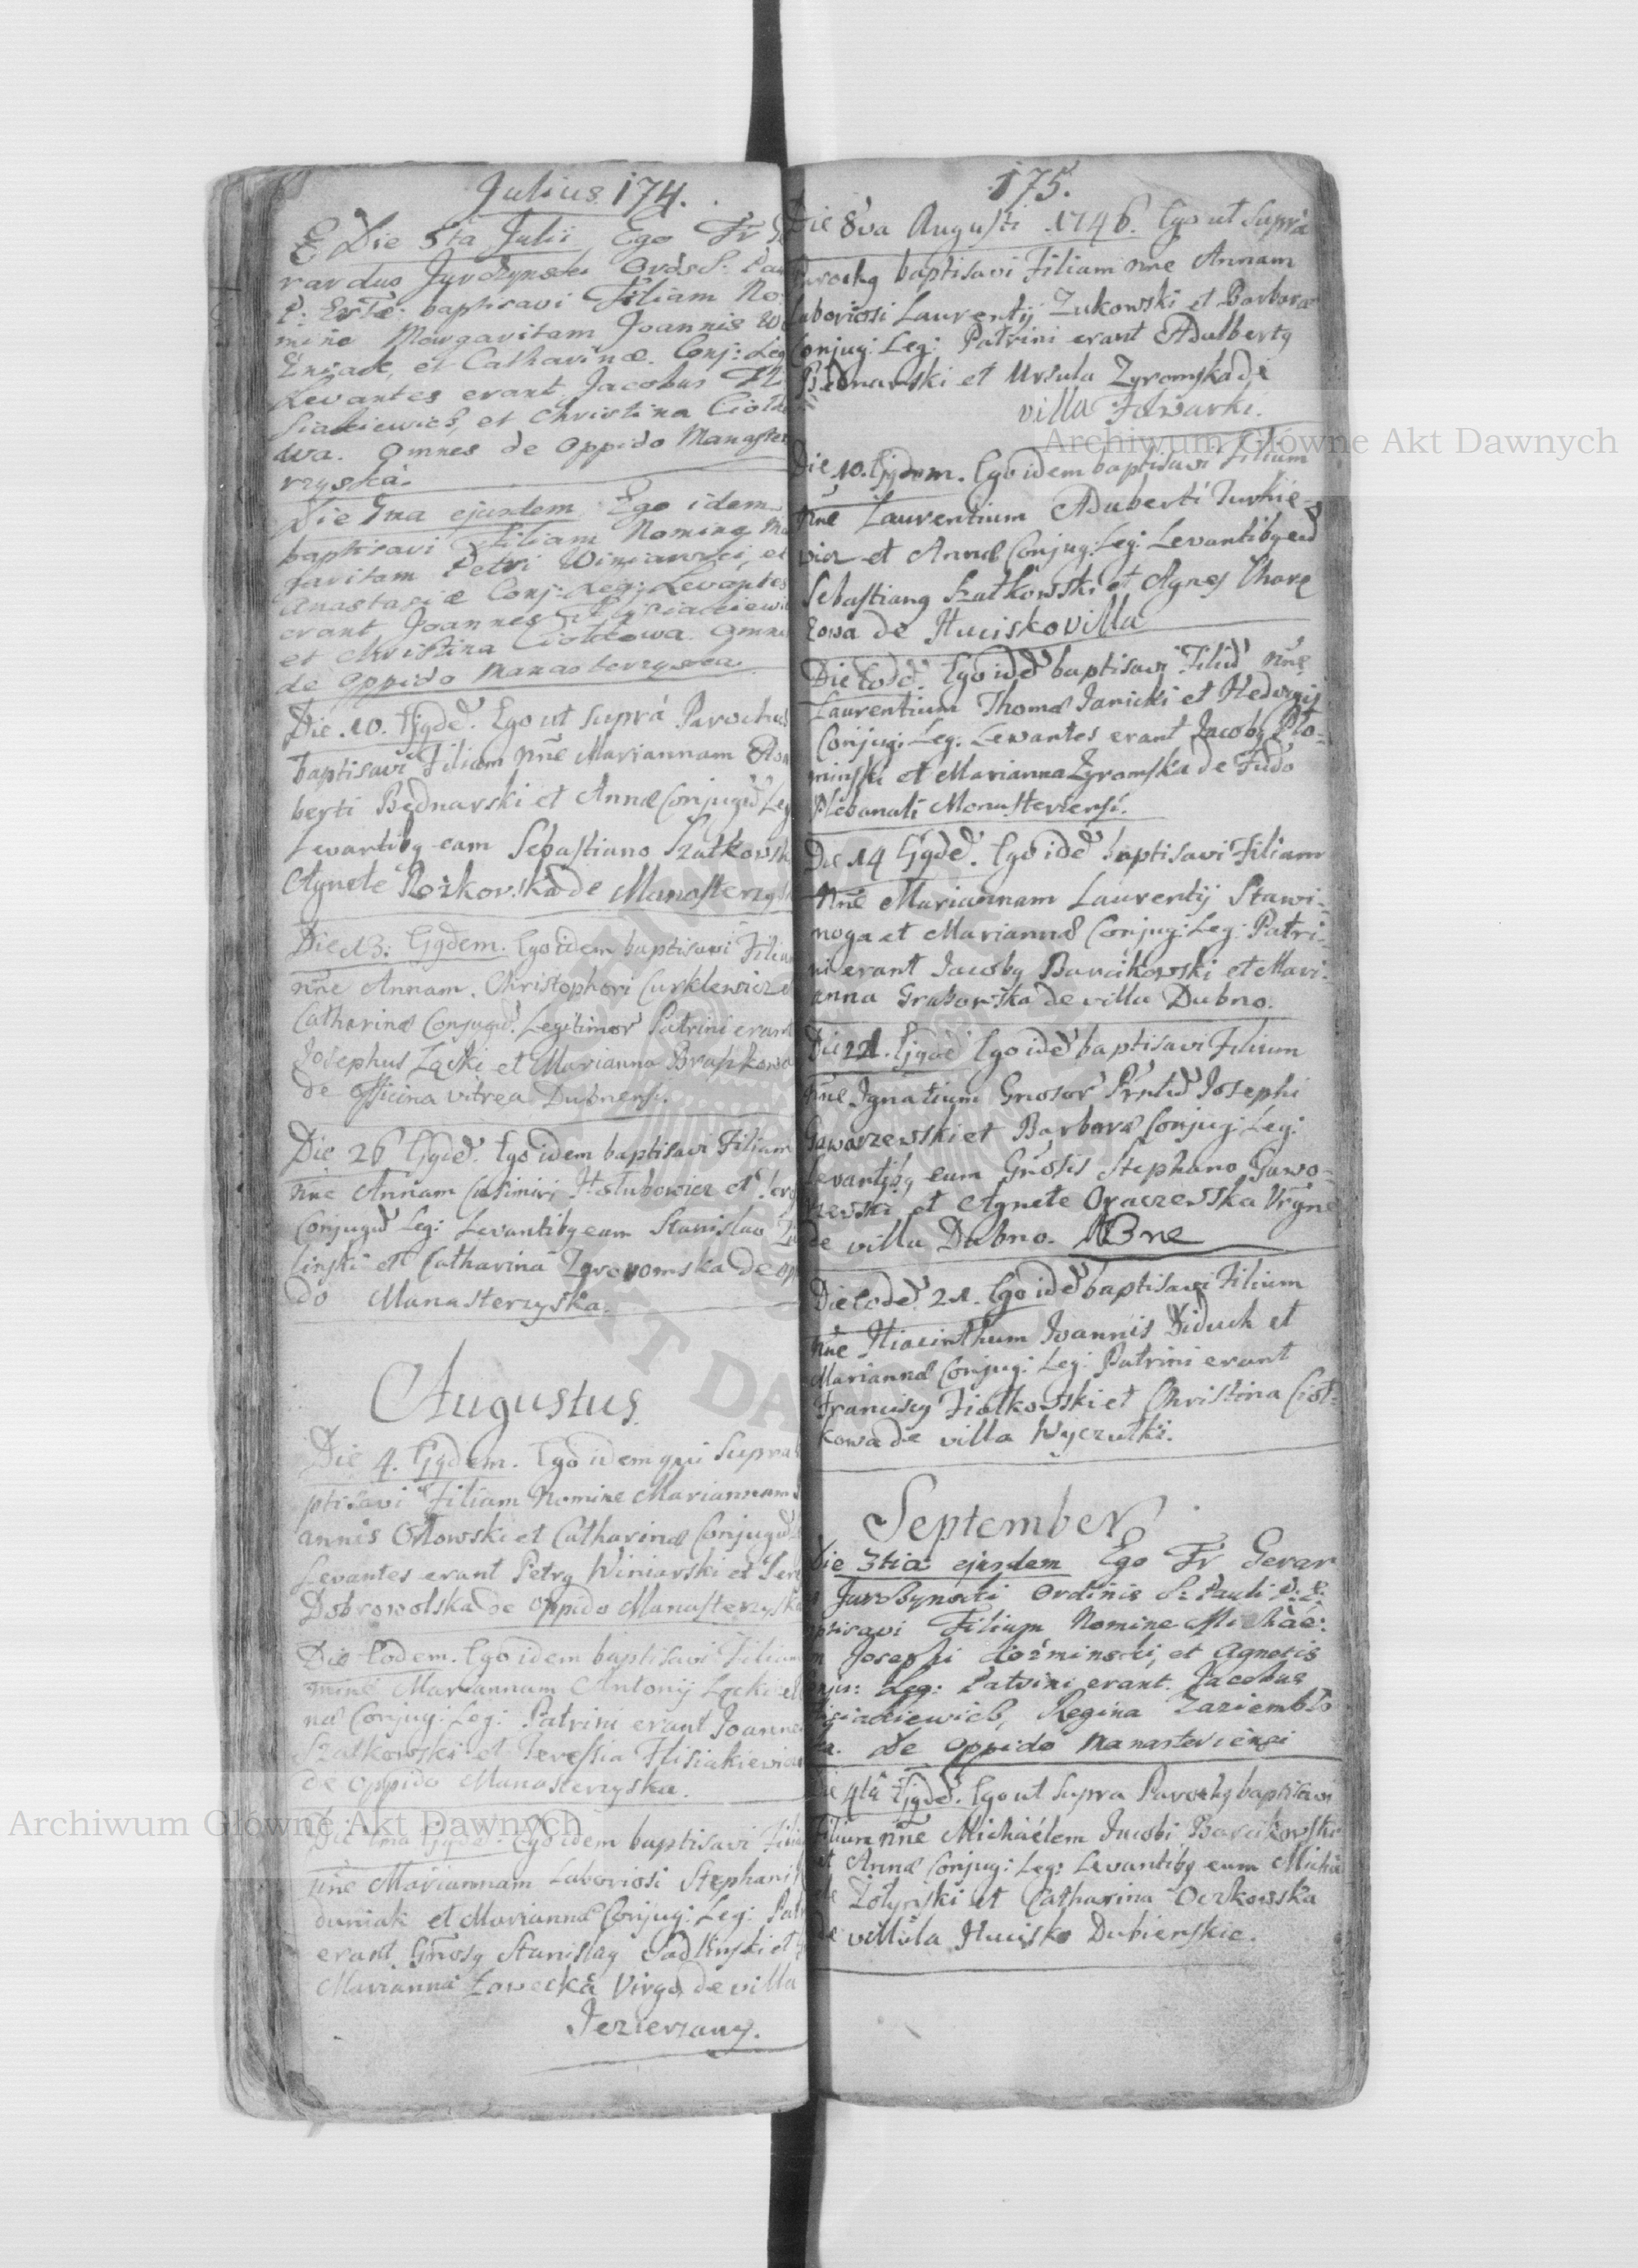 Julius 174.
Die 5ta Julii Ego Fr
rardus Jurczynski Ords S. Pau
P: Er Tae: baptisavi Filiam No:
mine Margaritam Joannis
et Catharinae. Conj: Leg
Levantes erant Jacobus
siakiewicz, et Christina Ciołk
wa. Omnes de Oppido Manaster
rzyska.
Die 7ma ejusdem Ego idem
baptisavi Filiam Nomine Ma
garitam Petri Winiarski, et
Anastasiae Conj: Leg: Levantes
erant Joannes Flisiakiewi
et Christina Ciołkowa. Omnes
de Oppido Manasterzyska.
Die .10. Ejgdē. Ego ut supra Parochus
baptisavi Filiam nñe Mariannam Adal
berti Bednarski et Annae Conjugū Leg
Levantibg eam Sebastiano Szałkowsk
Agnete Rożkowska de Manasterzys
Die 13. Ejgdem. Ego idem baptisavi Filiam
nñe Annam. Christophori Curklewicz
Catharinae Conjugū. Legitimor Patrini erant
Josephus Łącki et Marianna Braszkowa
de officina vitrea Dubnensi.
Die 26 Ejgdē. Ego idem baptisavi Filiam
nñe Annam Casimiri Hołubowicz et
Conjugū Leg: Levantibg eam Stanislao
linski et Catharina Zyromska de op
do Manasterzyska.
Augustus
Die 4. Ejgdem. Ego idem qui supra
ptisavi Filiam Nomine Mariannam
annis Orłowski et Catharinae Conjugū
Levantes erant Petrg Winiarski et Tere
Dobrowolska de oppido Manasterzyska
Die Eodem. Ego idem baptisavi Filiam
mine Mariannam Antonij Łącki et
nae Conjug: Leg: Patrini erant Joannes
Szałkowski et Teressia Flisiakiewicz
de Oppido Manasterzyska.
Die 7ma Ejgdē. Ego idem baptisavi Filia
nñe Mariannam Laboriosi Stephani
duniak et Mariannae Conjug: Leg: Patr
erant Gñosg Stanislag Sadlinski et
Marianna Łowecka Virgo de villa
Jezierzany.
175.
Die 8va Augusti .1746. Ego ut supra
Parochg baptisavi Filiam nñe Annam
Laboriosi Laurentij Zukowski et Barbarae
Conjug: Leg: Patrini erant Adalbertg
Bednarski et Ursula Zyromska de
villa Folwarki.
Die 10. Ejgdem. Ego idem baptisavi Filium
nñe Laurentium Adalberti Turkie-
wicz et Annae Conjug: Leg: Levantibg eū
Sebastiang Szałkowski et Agnes
zowa de Hucisko villa
Die Eodē. Ego idē baptisavi Filiū nñe
Laurentium Thomae Janicki et Hedvigis
Conjug: Leg: Levantes erant Jacobg Pło-
minski et Marianna Zyromska de Fūdo
Plebanali Monasteriensi.
Die 14 Ejgdē. Ego idē baptisavi Filiam
nñe Mariannam Laurentij Stawi-
noga et Mariannae Conjug: Leg: Patri-
ni erant Jacobg Barcikowski et Mari-
anna Grabowska de villa Dubno.
Die 21. Ejgdē Ego idē baptisavi Filium
nñe Ignatium Gnosor Parntū Josephi
Gaworzewski et Barbarae Conjug: Leg:
Levantibg eum Gñosis Stephano Gawo-
rzewski et Agnete Oraczewska Virgne
de villa Dubno. NBne
Die Eodē. 21. Ego idē baptisavi Filium
nñe Hiacinthum Joannis Diduch et
Mariannae Conjug: Leg: Patrini erant
Franciscg Fiołkowski et Christina Cioł-
kowa de villa Wyczułki.
September
Die 3tia ejusdem Ego Fr Gerar
Jurczynski Ordinis S: Pauli P. E.
ptisavi Filium Nomine Michaë:
m Josephi Koźminski, et Agnetis
onju: Leg: Patrini erant. Jacobus
Flisiakiewicz, Regina Zaziembło
wa. de Oppido Manasteriensi
Die 4ta Ejgdē. Ego ut supra Parochg baptisavi
Filium nñe Michaëlem Jacobi Barcikowski
et Annae Conjug: Leg: Levantibg eum Micha
ele Żołynski et Catharina Oczkowska
de villula Hucisko Dubienskie.
Archiwum Główne Akt Dawnych
Archiwum Główne Akt Dawnych